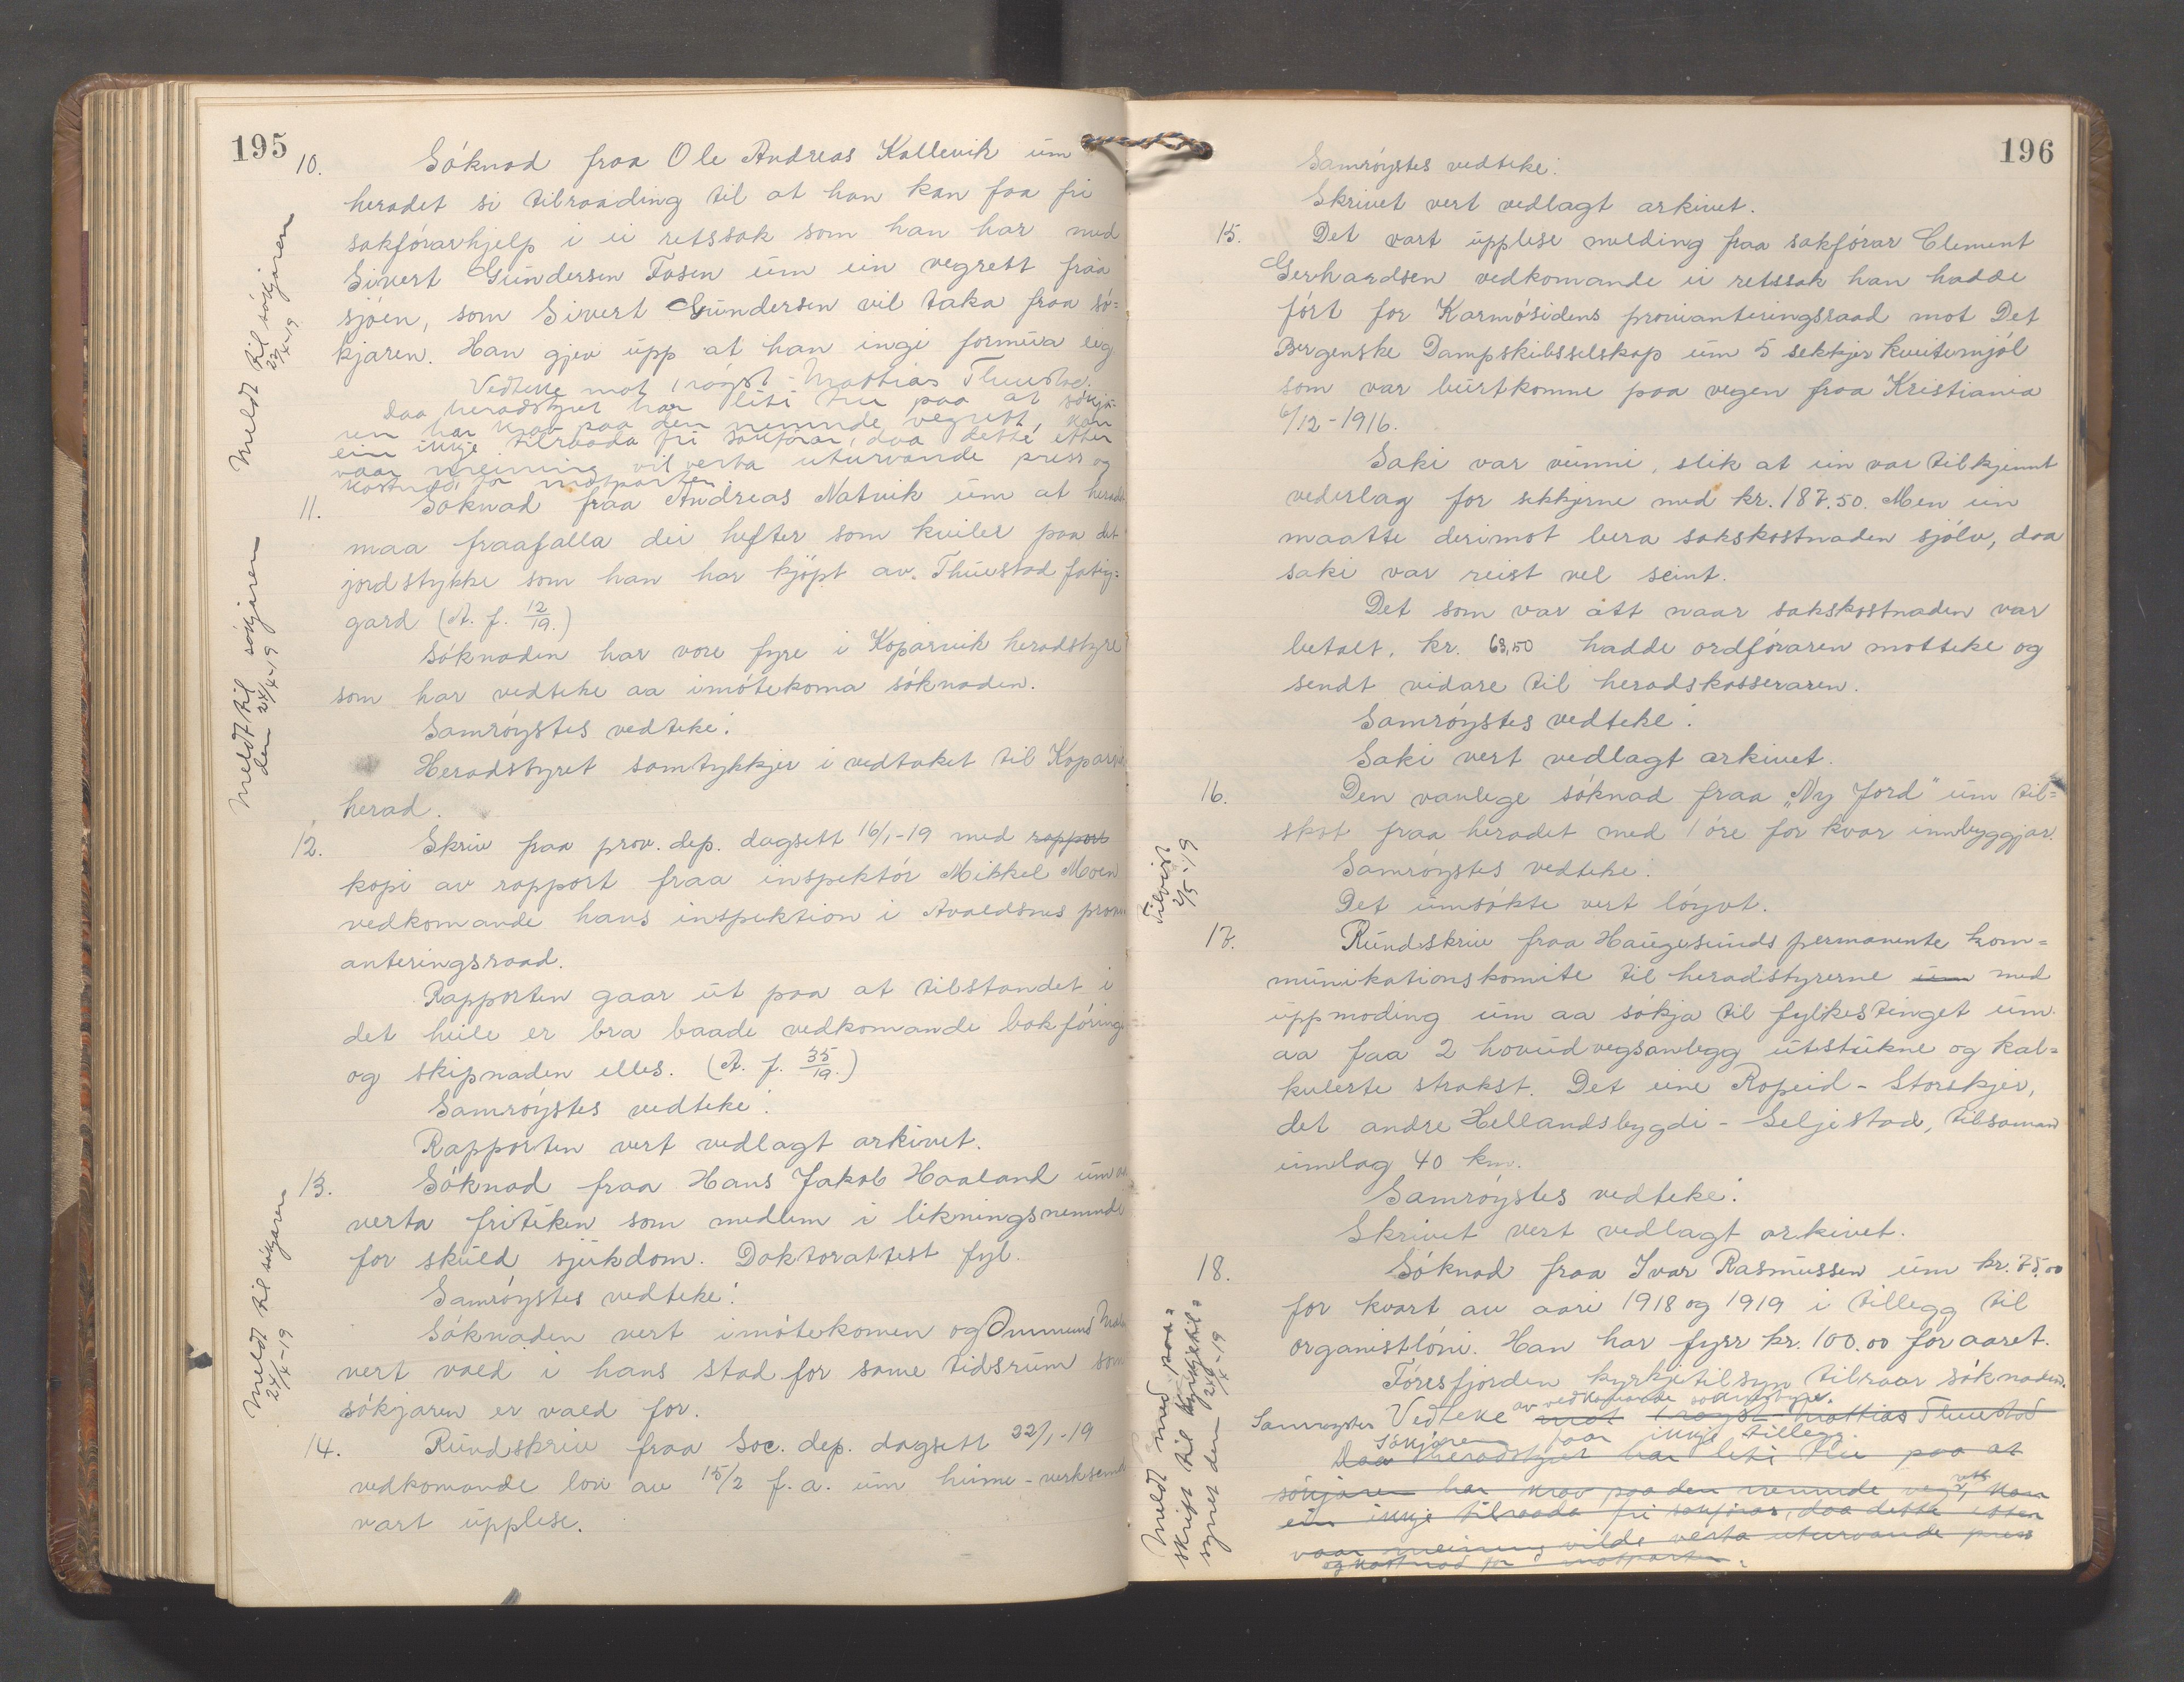 195
10. Söknad fraa Ole Andreas Kallevik um
heradet si tilraading til at han kan faa fri
sakförarhjelp i ei retssak som han har med
Sivert Gundersen Fosen um ein vegrett fraa
sjöen, som Sivert Gundersen vil taka fraa sö=
kjaren. Han gjev upp at han ingi formúva eig
Vedteke mot 1 röyst - Mattias Thuestad.
Daa heradstyret har liti tru paa at sökja-
ren har krav paa den nemnde vegrett, kan
ein ikkje tilraada fri sakförar, daa dette etter
vaar meining vil verta uturvande press og
kostnad for motparten.
Meldt til sökjaren
24/4-19
11. Söknad fraa Andreas Natvik um at heradet
maa fraafalla dei hefter som kviler paa det
jordstykke som han har kjöpt av Thuestad fatig=
gard (A. f. 12/19.)
Söknaden har vore fyre i Kopervik heradstyre
som har vedteke aa imötekoma söknaden.
Samröystes vedteke:
Heradstyret samtykkjer i vedtaket til Kopervik
herad.
Meldt til sökjaren
den 24/4-19
12. Skriv fraa prov. dep. dagsett 16/1-19 med rapport
kopi av rapport fraa inspektör Mikkel Moen
vedkomande hans inspektion i Avaldsnes provi
anteringsraad.
Rapporten gaar ut paa at tilstandet i
det heile er bra baade vedkomande bokföringi
og skipnaden elles. (A. f. 35/19.)
Samröystes vedteke:
Rapporten vert vedlagt arkivet.
13. Söknad fraa Hans Jakob Haaland um aa
verta friteken som medlem i likningsnemnde
for skuld sjukdom. Doktorattest fyl.
Samröystes vedteke:
Söknaden vert imötekomen og Ommund
vert vald i hans stad for same tidsrum som
sökjaren er vald for.
Meldt til sökjaren
24/4-19
14. Rundskriv fraa Soc. dep. dagsett 22/1-19
vedkomande lov av 15/2 f.a. um heime-verksemd
vart upplese.
196
Samröystes vedteke:
Skrivet vert vedlagt arkivet.
15. Det vart upplese melding fraa sakförar Clement
Gerhardsen vedkomande ei retssak han hadde
fört for Karmösidens provianteringsraad mot Det
Bergenske Dampskibsselskap um 5 sekkjer kveitemjöl
som var burtkomne paa vegen fraa Kristiania
6/12-1916.
Saki var vunni, slik at ein var tilkjennt
vederlag for sekkjerne med kr. 187.50. Men ein
maatte derimot bera sakskostnaden sjölv, daa
saki var reist vel seint.
Det som var att naar sakskostnaden var
betalt, kr. 63,50 hadde ordföraren motteke og
sendt vidare til heradskasseraren.
Samröystes vedteke:
Saki vert vedlagt arkivet.
16. Den vanlege söknad fraa „Ny Jord" um til=
skot fraa heradet med 1 öre for kvar innbyggjar.
Samröystes vedteke:
Det umsökte vert löyvt.
Tilvist
2/5-19
17. Rundskriv fraa Haugesunds permanente kom=
munikationskomite til heradstyrerne um med
uppmoding um aa sökja til fylkestinget um
aa faa 2 hovudvegsanlegg utstukne og kal=
kulerte strakst. Det eine Ropeid - Storskjer,
det andre Hellandsbygdi - Seljestad, tilsaman
umlag 40 km.
Samröystes vedteke:
Skrivet vert vedlagt arkivet.
18. Söknad fraa Ivar Rasmussen um kr. 75.00
for kvart av aari 1918 og 1919 i tillegg til
organistlöni. Han har fyrr kr. 100.00 for aaret.
Föresfjorden kyrkjetilsyn tilraar söknaden.
av vedkomande soknestyre.
Samröystes Vedteke mot 1 röyst Mattias Thuestad
Sökjaren faar ikkje tillegg.
Daa heradstyret har liti tru paa at
sökjaren har krav paa den nemnde vegrett, kan
ein ikkje tilraada fri sakförar, daa dette etter
vaar meining vilde verta uturvande press
og kostnad for motparten.
Meldt med paa=
skrift til kyrkjetil=
synet den 24/4-19